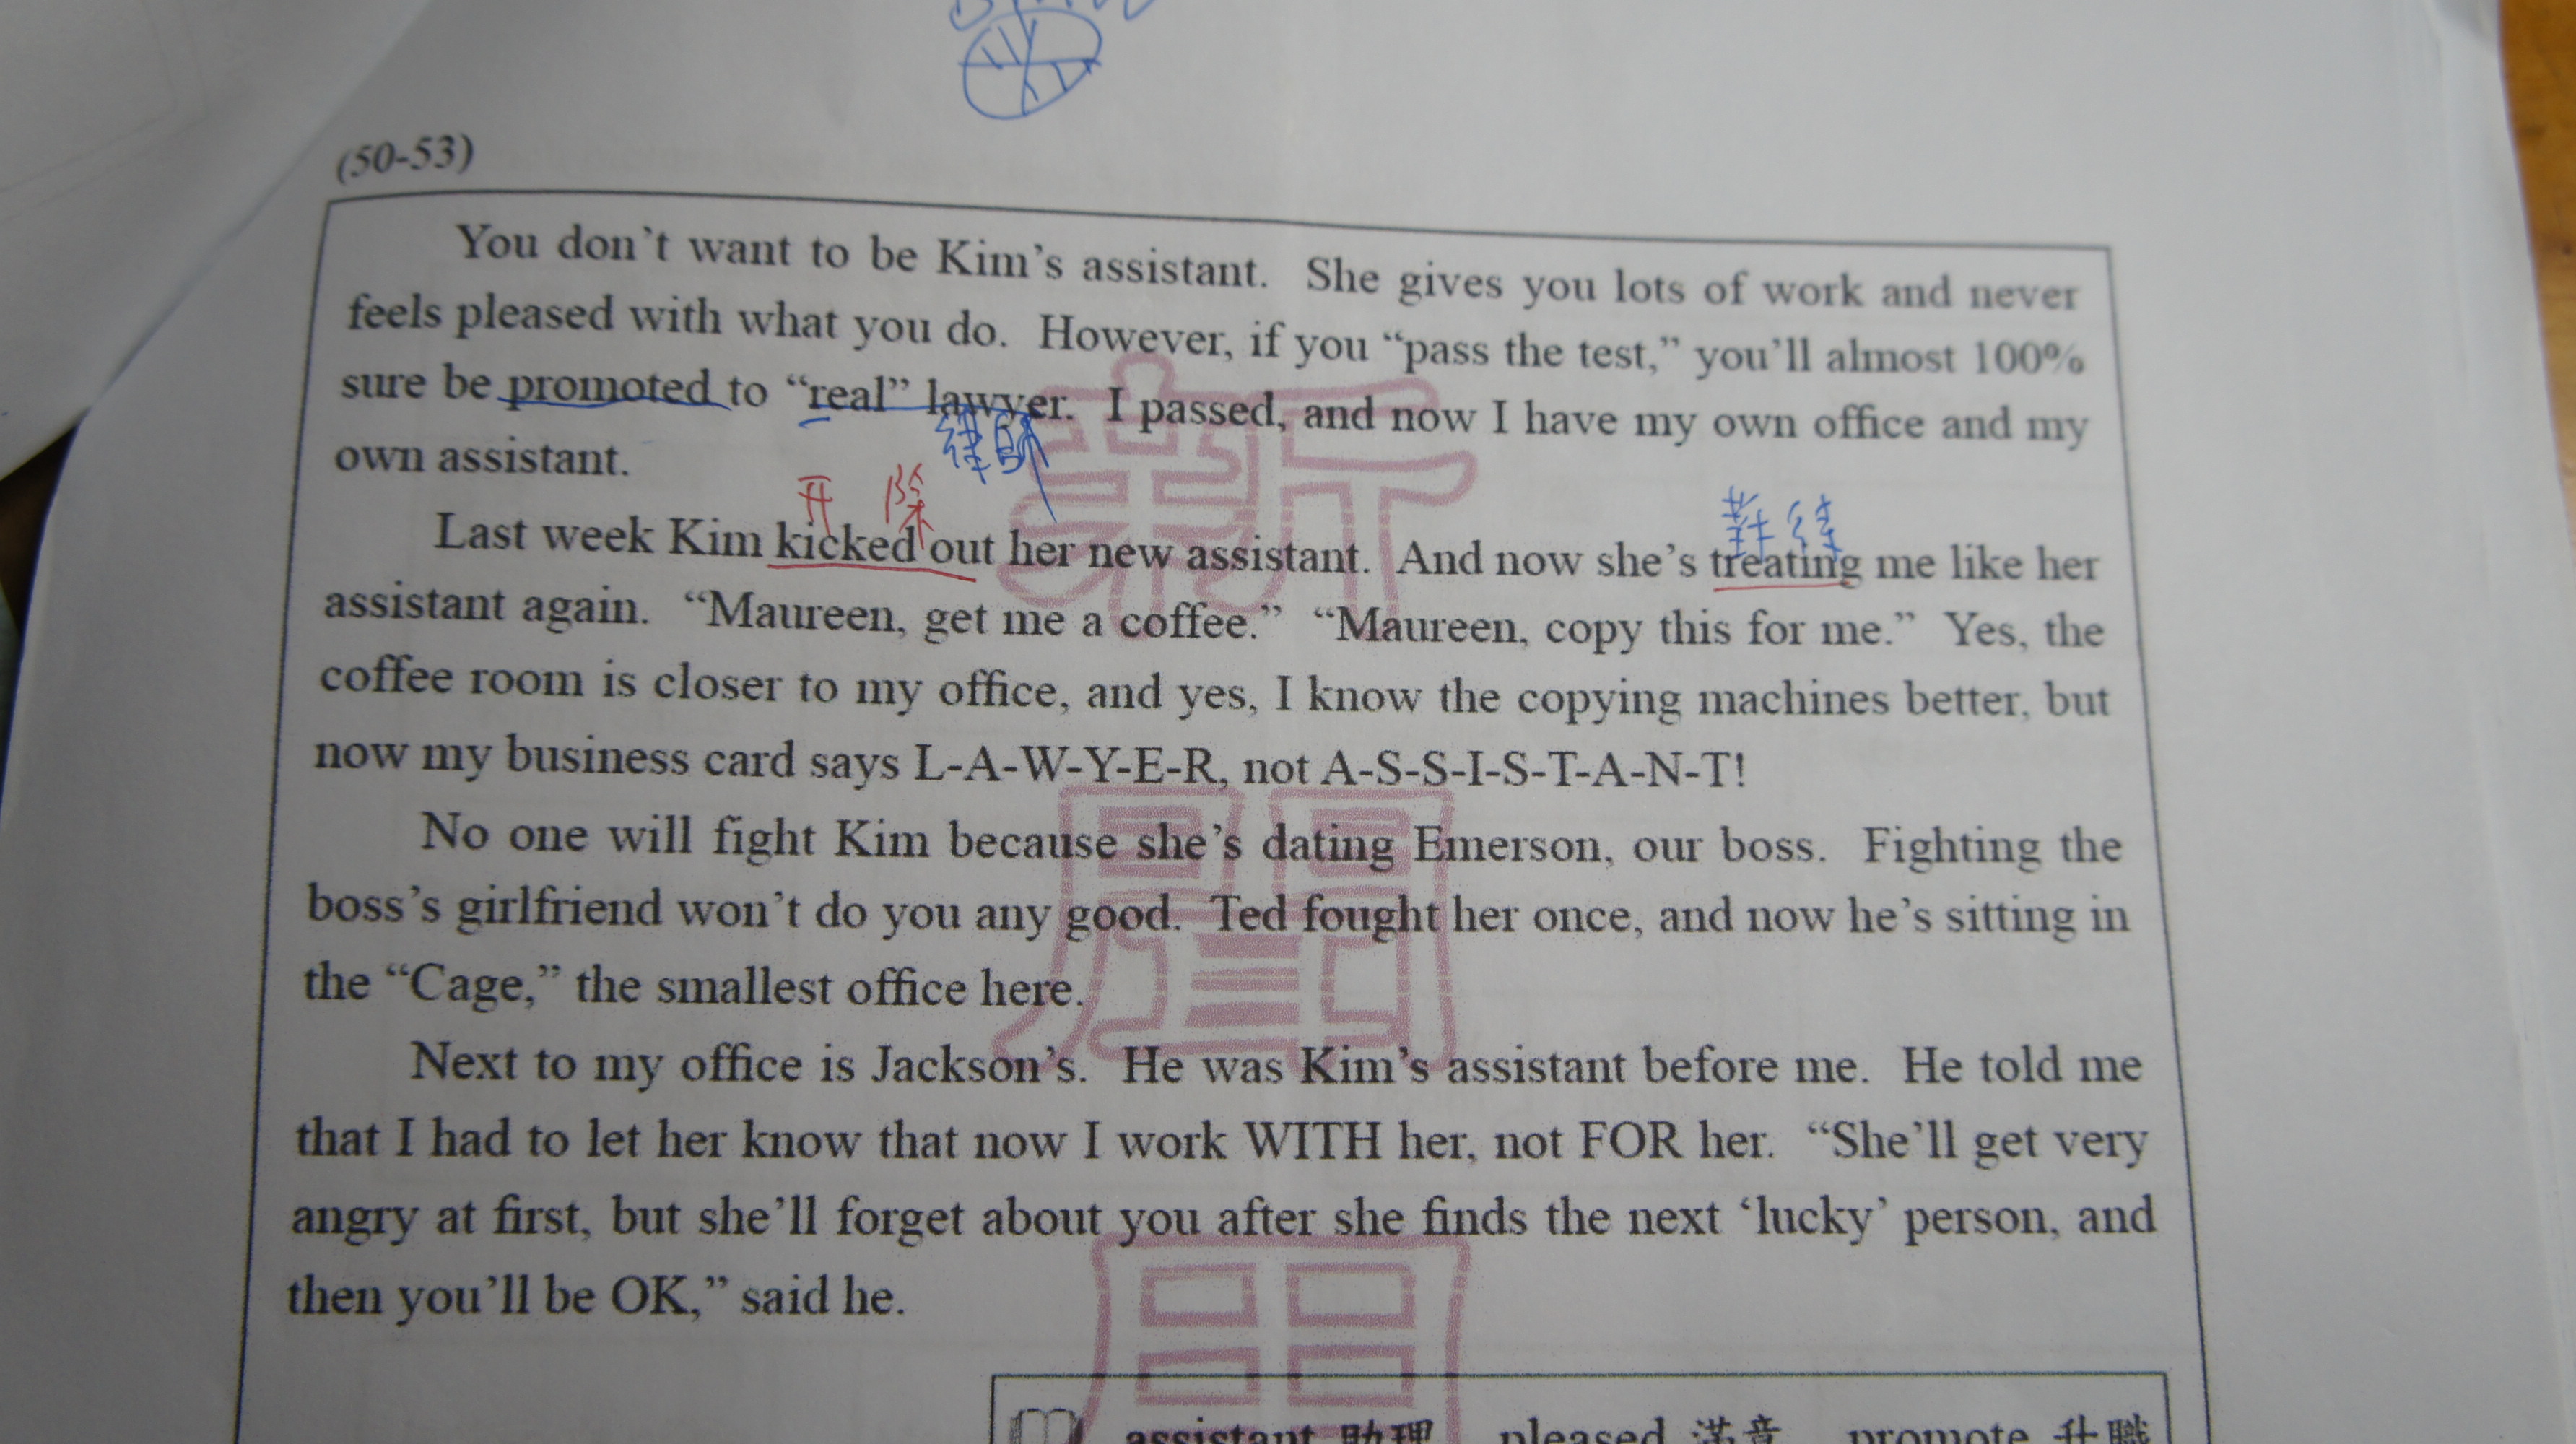 (50-53)
You don't want to be Kim's assistant. She gives you lots of work and never
feels pleased with what you do. However, if you “pass the test,” you'll almost 100%
sure be promoted to “real” lawyer. I passed, and now I have my own office and my
律師
own assistant.
开 除
Last week Kim kicked out her new assistant. And now she's treating me like her
assistant again. “Maureen, get me a coffee.” “Maureen, copy this for me.” Yes, the
coffee room is closer to my office, and yes, I know the copying machines better, but
now my business card says L-A-W-Y-E-R, not A-S-S-I-S-T-A-N-T!
No one will fight Kim because she's dating Emerson, our boss. Fighting the
boss's girlfriend won't do you any good. Ted fought her once, and now he's sitting in
the “Cage,” the smallest office here.
Next to my office is Jackson's. He was Kim's assistant before me. He told me
that I had to let her know that now I work WITH her, not FOR her. “She'll get very
angry at first, but she'll forget about you after she finds the next ‘lucky’ person, and
then you'll be OK,” said he.
assistant 助理 pleased 滿意 promote 升職